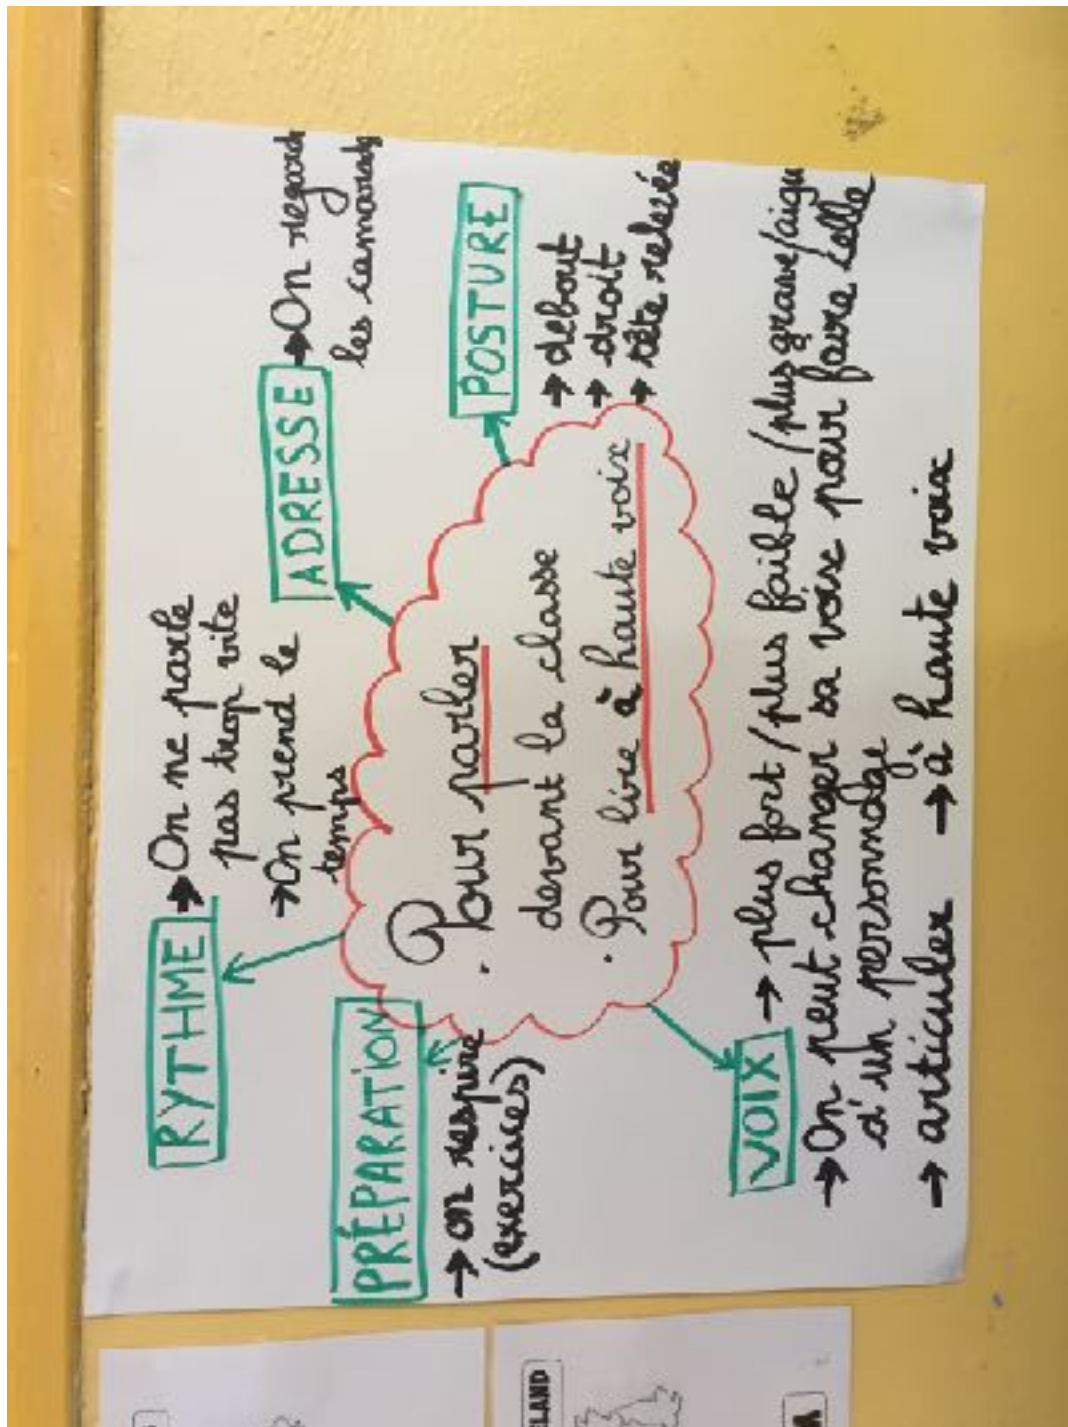 RYTHME
→ On ne parle
pas trop vite
→ On prend le
temps
ADRESSE
→ On regarde
les camarades
PRÉPARATION
→ on respire
(exercices)
POSTURE
→ debout
→ droit
→ tête relevée
. Pour parler
devant la classe
. Pour lire à haute voix
VOIX
→ plus fort / plus faible / plus grave / aigu
→ On peut changer sa voix pour faire celle
d'un personnage
→ articuler → à haute voix
ELAND